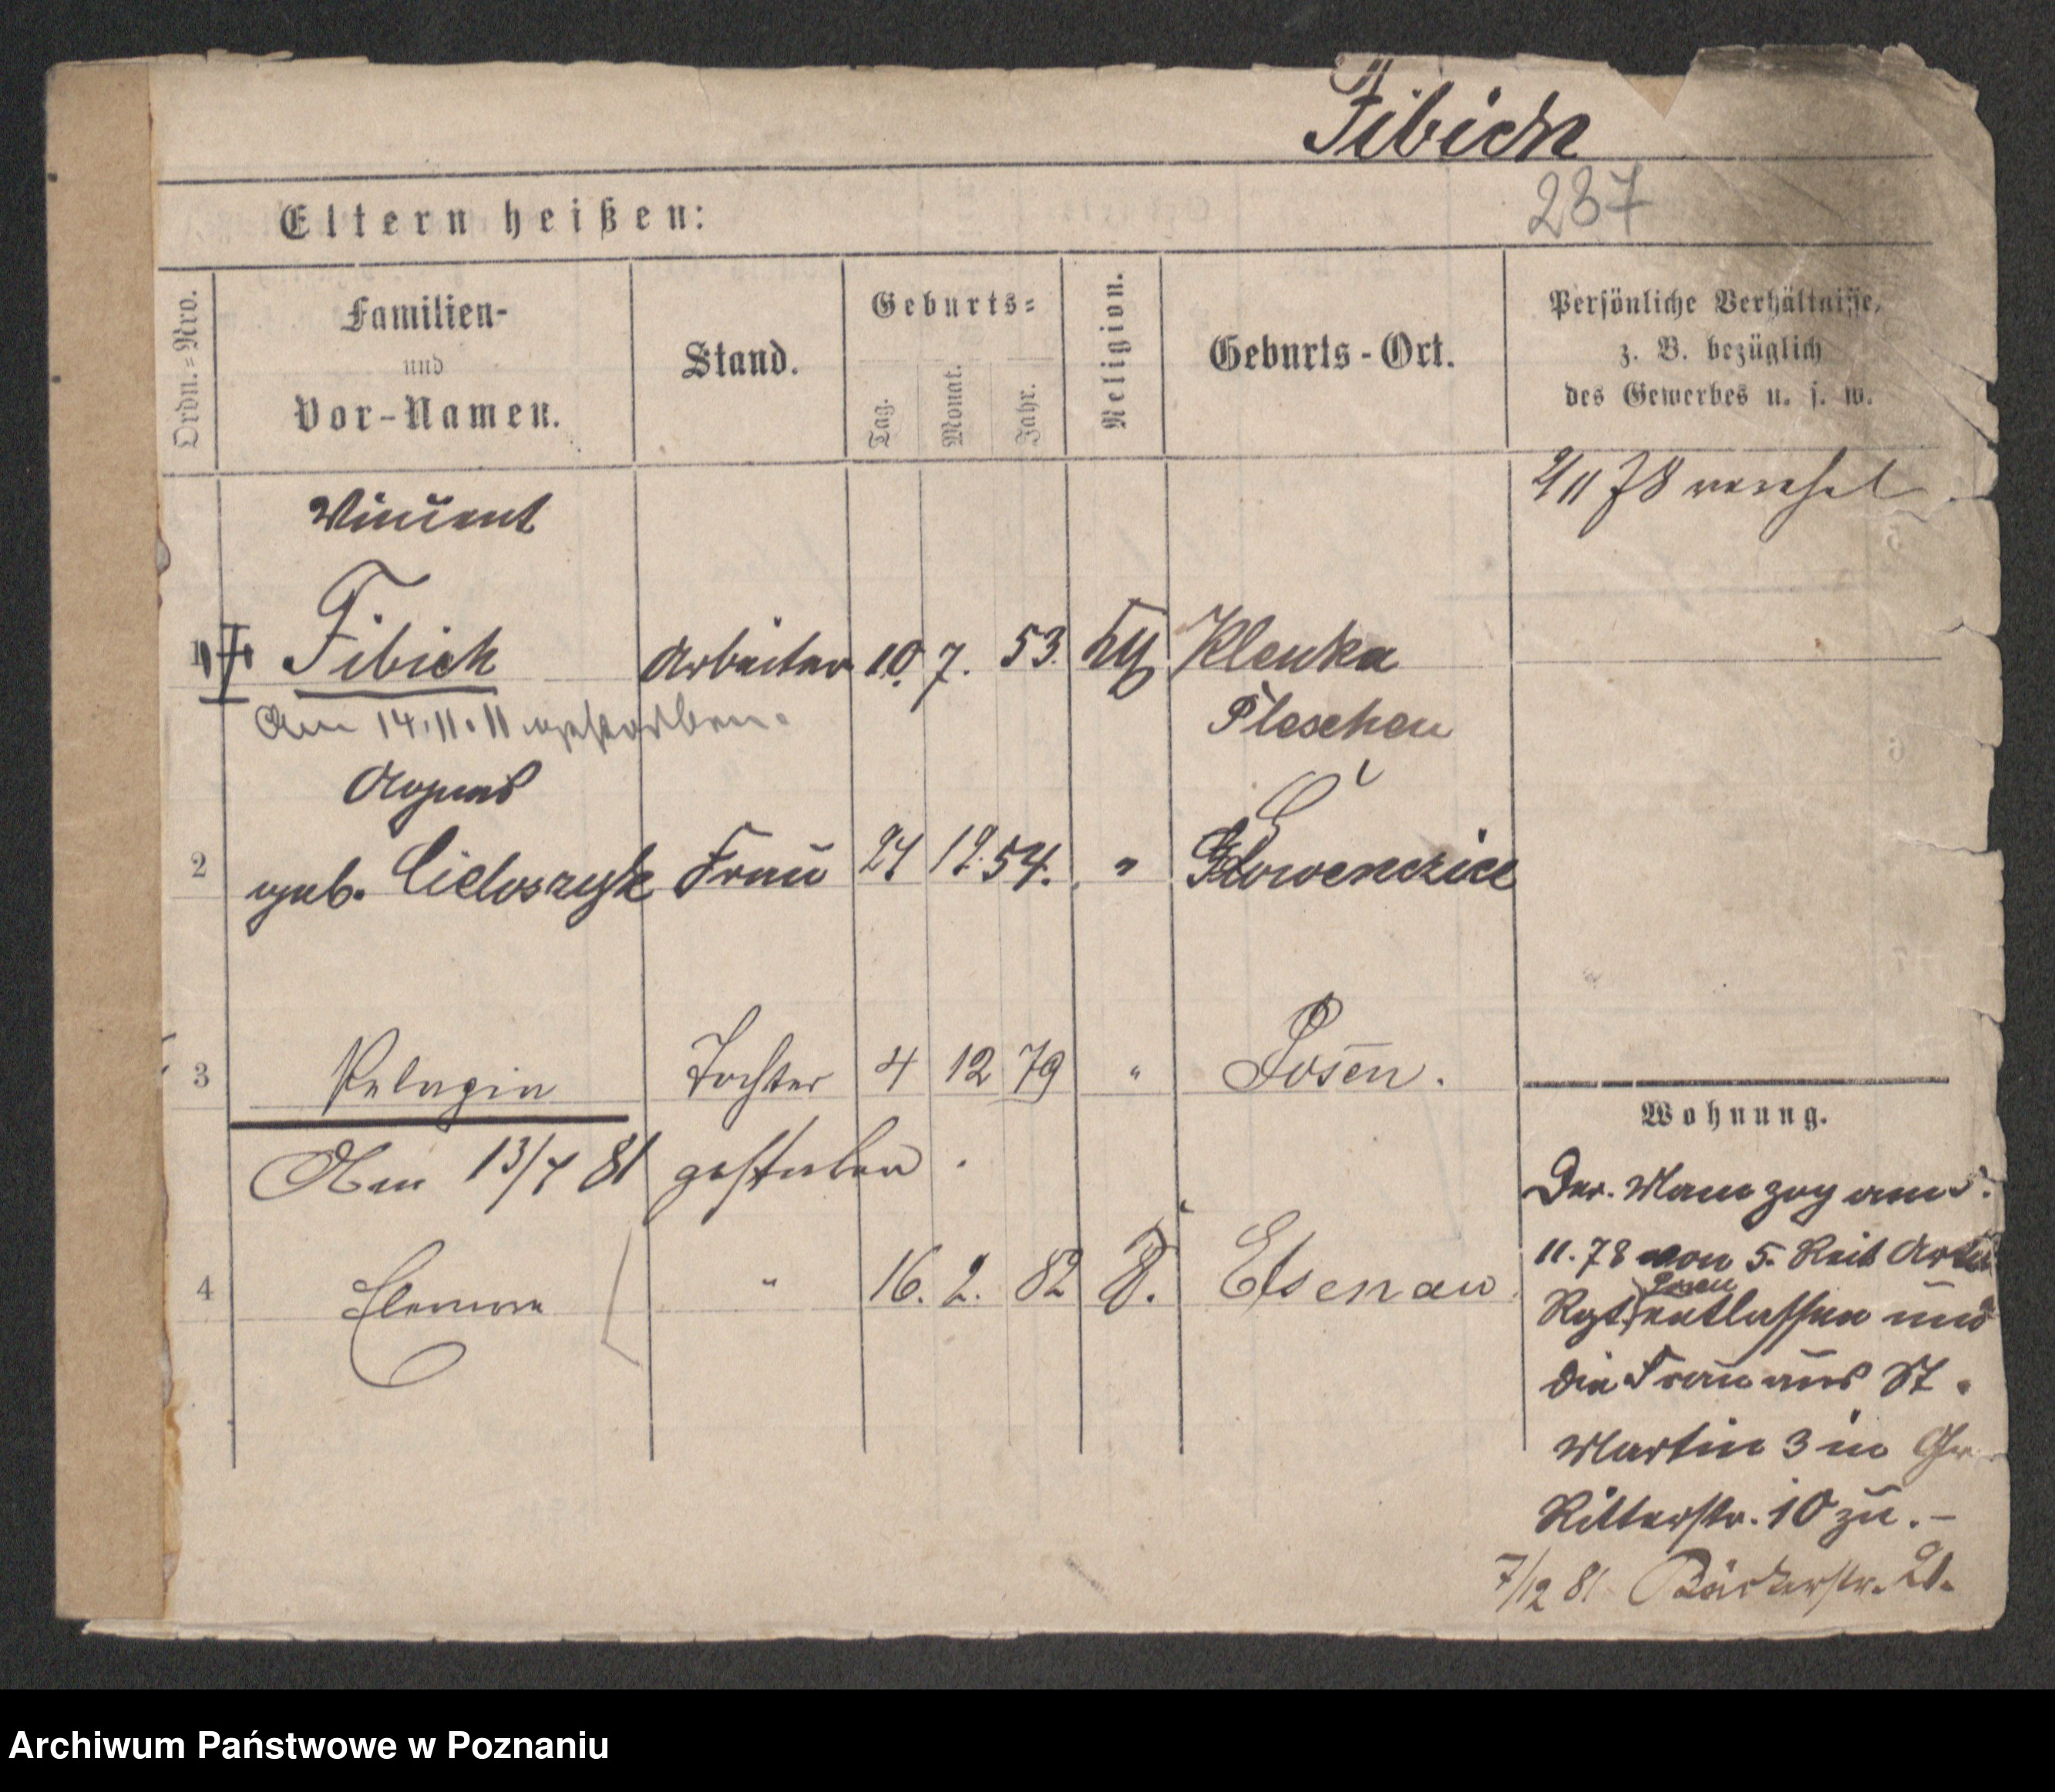 Fibich
287
Eltern heißen:
Ordn.=Nro.
Familien-
und
Vor-Namen.
Stand.
Geburts=
Tag.
Monat.
Jahr.
Religion.
Geburts-Ort.
Persönliche Verhältnisse,
z. B. bezüglich
des Gewerbes u. s. w.
2/11 78 verehel
Vincent
1 Fibich Arbeiter 10. 7. 53. Klenka
Am 14.11.11 gestorben.
Pleschen
Agnes
2 geb. Cieloszyk Frau 24 12. 54. " Glowenczice
3 Pelagia Tochter 4 12 79 " Posen.
Am 13/4 81 gestorben.
4 " 16. 2. 82 Elsenau
Wohnung.
Der Mann zog am
11.78 von 5. Feld Art
Rgt. Posen entlassen und
die Frau aus St.
Martin 3 in Gr
Ritterstr. 10 zu.-
7/12 81 Bäckerstr. 21.
Archiwum Państwowe w Poznaniu